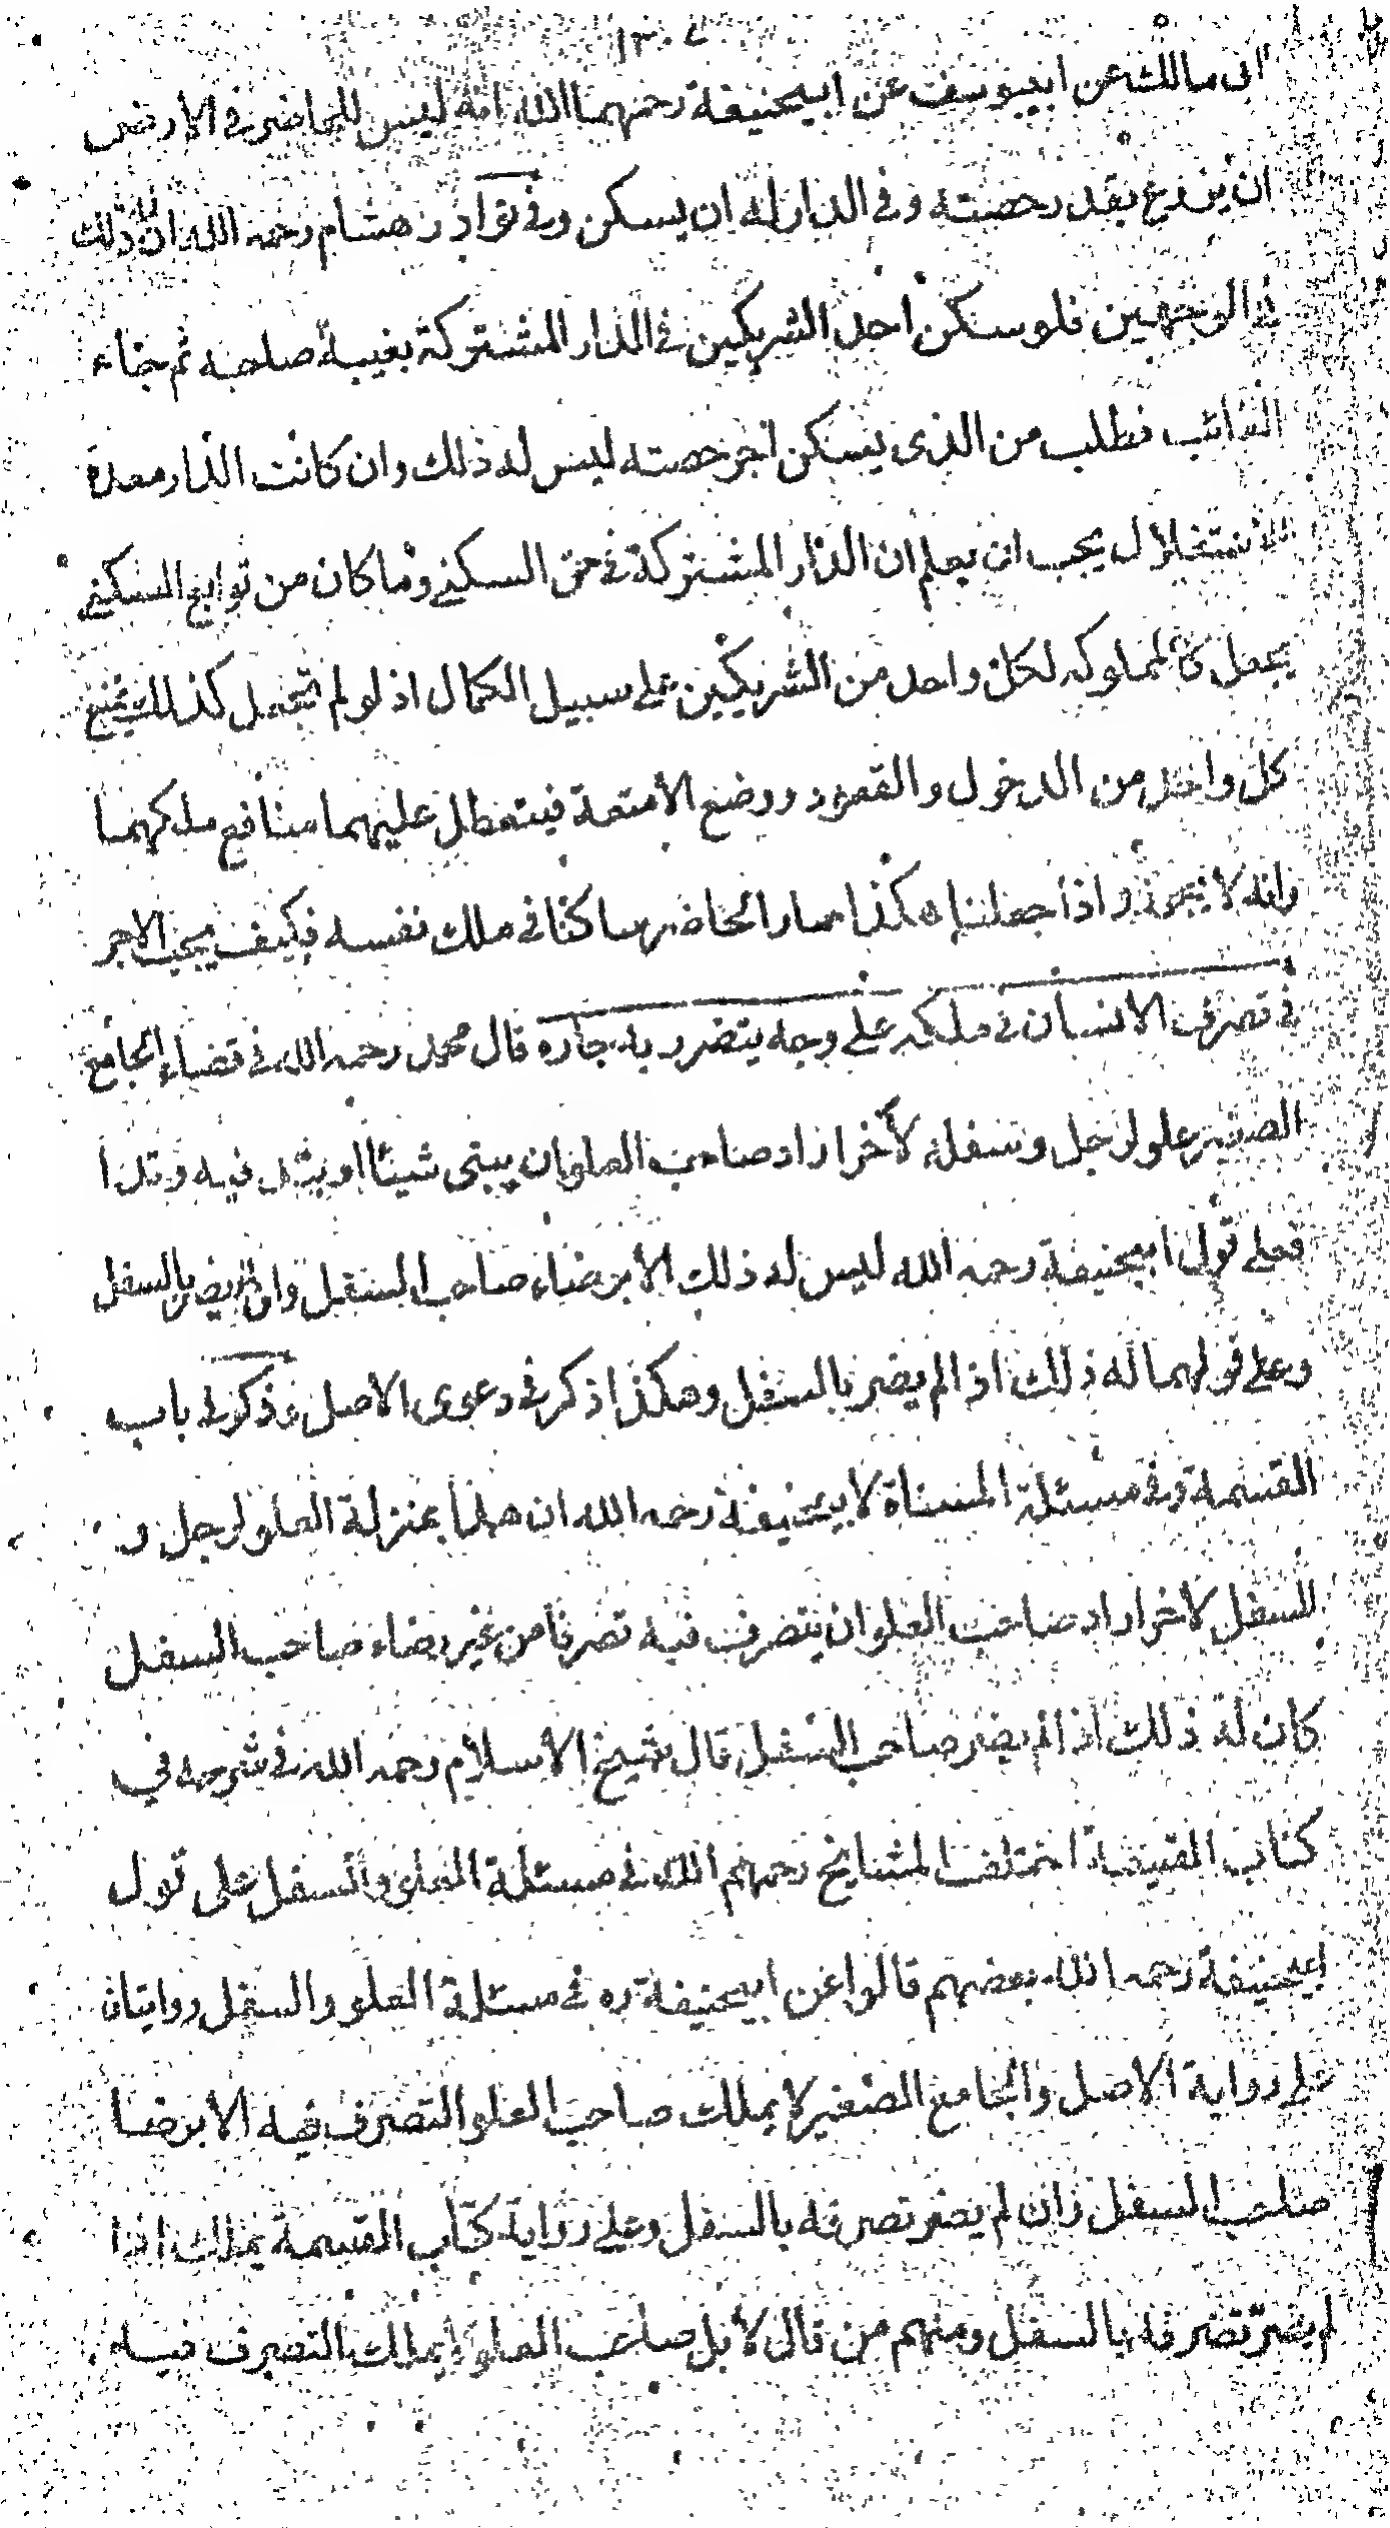 ١٣٠٧
ابى مالك عن ابيوسف عن ابيحنيفة رحمهما الله انه ليس للحاضر فى الارض
ان يزرع بقدر حصته وفى الدار له ان يسكن وفى نوادر هشام رحمه الله ان له ذلك
فى الوجهين فلو سكن احد الشريكين فى الدار المشتركة بغيبة صاحبه ثم جاء
الغائب فطلب من الذى يسكن اجر حصته ليس له ذلك وان كانت الدار معدة
للاستغلال يجب ان يعلم ان الدار المشتركة فى حق السكنى وما كان من توابع السكنى
يجعل كالمملوكه لكل واحد من الشريكين على سبيل الكمال اذ لو لم تجعل كذلك يمنع
كل واحد من الدخول والقعود ووضع الامتعة فيتعطل عليهما منافع ملكهما
وانه لا يجوز واذا جعلنا هكذا صار الحاضر ساكنا فى ملك نفسه فكيف يجب الاجر
فى تصرف الانسان فى ملكه على وجه يتضرر به جاره قال محمد رحمه الله فى قضاء الجامع
الصغير علو لرجل وسفله لآخر اراد صاحب العلو ان يبنى شيئا او يثد فيه وتدا
فعلى قول ابيحنيفة رحمه الله ليس له ذلك الا برضاء صاحب السفل وان لم يضر بالسفل
وعلى قولهما له ذلك اذا لم يضر بالسفل وهكذا ذكر فى دعوى الاصل وذكر فى باب
القسمة وفى مسئلة المسناة لابيحنيفة رحمه الله ان هذا بمنزلة العلو لرجل و
السفل لاخر اراد صاحب العلو ان يتصرف فيه تصرفا من غير رضاء صاحب السفل
كان له ذلك اذا لم يضر صاحب السفل قال شيخ الاسلام رحمه الله فى شرحه فى
كتاب القسمة اختلف المشايخ رحمهم الله فى مسئلة العلو والسفل على قول
ابيحنيفة رحمه الله بعضهم قالوا عن ابيحنيفة ره فى مسئلة العلو والسفل روايتان
على رواية الاصل والجامع الصغير لا يملك صاحب العلو التصرف فيه الا برضا
صاحب السفل وان لم يضر تصرفه بالسفل وعلى رواية كتاب القسمة يملك اذا
لم يضر تصرفه بالسفل ومنهم من قال لا بل صاحب العلو لا يملك التصرف فيه